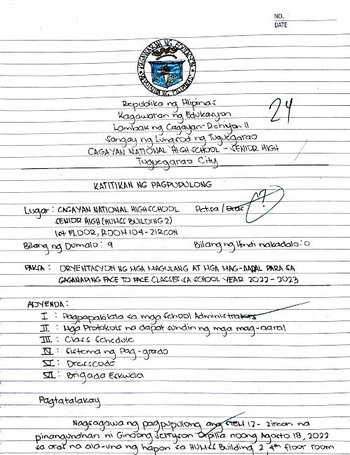 NO.
DATE
Republika ng Pilipinas
Kagawaran ng Edukasyon
Lambak ng Cagayan-Rehiyon II
Sangay ng Lungsod ng Tuguegarao
CAGAYAN NATIONAL HIGH SCHOOL - SENIOR HIGH
Tuguegarao City
24
KATITIKAN NG PAGPUPULONG
Lugar: CAGAYAN NATIONAL HIGH SCHOOL Petsa/Oras: ?
SENIOR HIGH (HUMSS BUILDING 2)
1st FLOOR, ROOM 104-ZIRCON
Bilang ng Dumalo: 9 Bilang ng Hindi nakadalo: 0
PAKSA: ORYENTASYON NG MGA MAGULANG AT MGA MAG-AARAL PARA SA
GAGANAPING FACE TO FACE CLASSES SA SCHOOL YEAR 2022-2023
ADYENDA:
I : Pagpapakilala sa mga School Administrators
II : Mga Protokols na dapat sundin ng mga mag-aaral
III : Class Schedule
IV : Sistema ng Pag-grado
V : Dresscode
VI : Brigada Eskwela
Pagtatalakay
Nagsagawa ng pagpupulong ang STEM 12- Zircon na
pinangunahan ni Ginoong noong Agosto 18, 2022
sa oras na ala-una ng hapon sa HUMSS Building 2 4th floor room